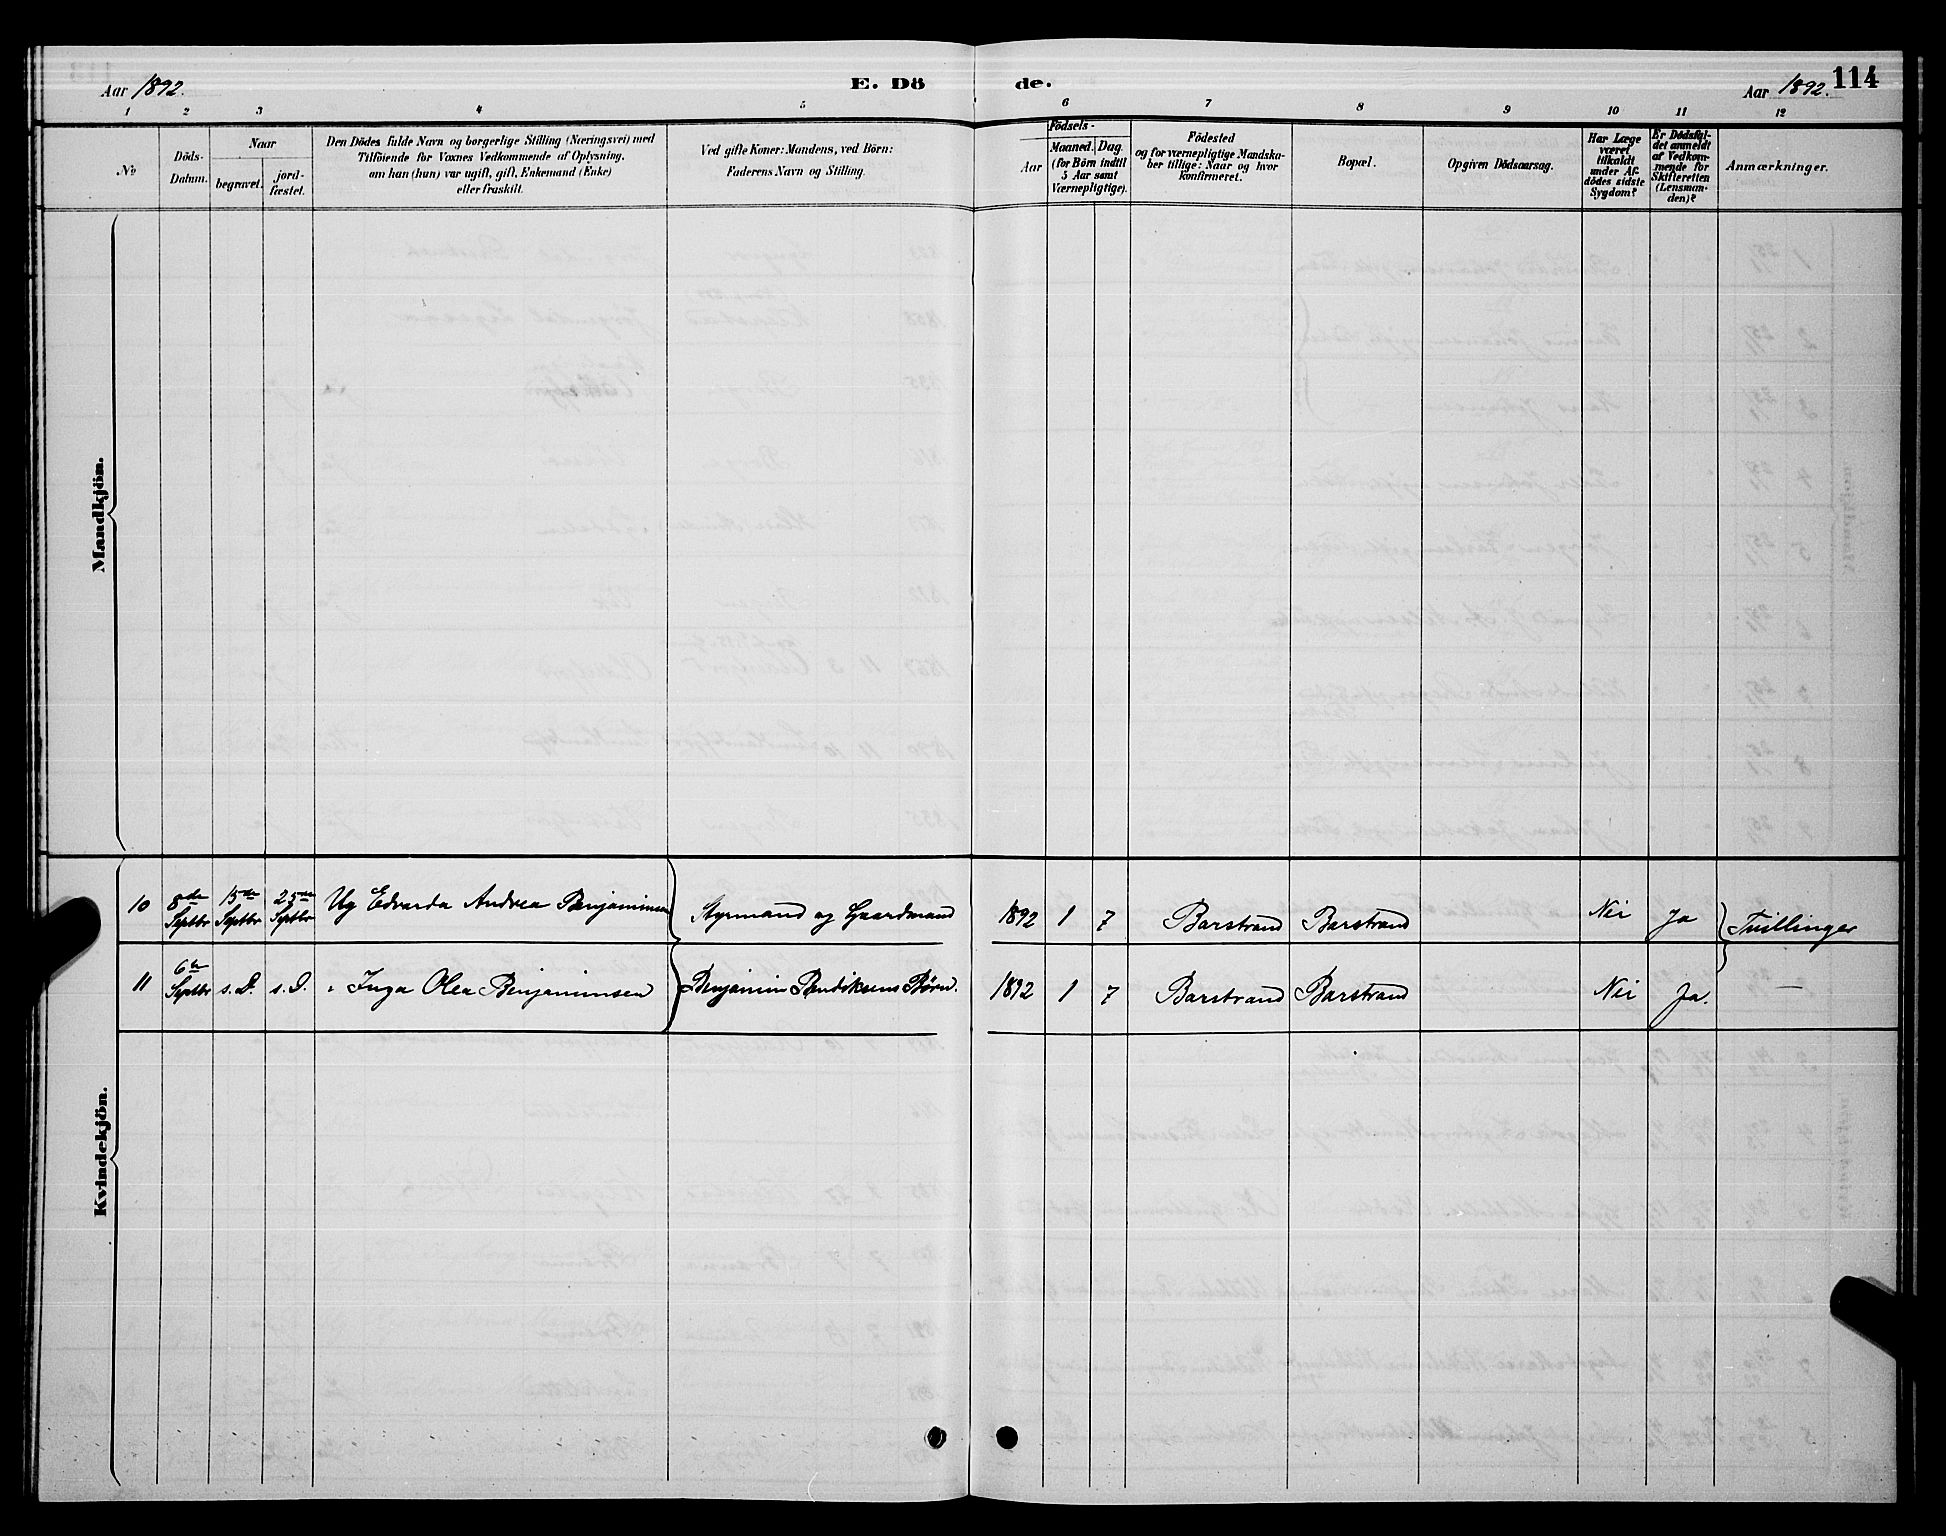 Aar 1892.
E. Dö
de.
Aar 1892.
114
1 2 3 4 5 6 7 8 9 10 11 12
No
Döds-
Datum.
Naar
begravet.
jord-
fæstet.
Den Dödes fulde Navn og borgerlige Stilling (Næringsvei) med
Tilföiende for Voxnes Vedkommende af Oplysning,
om han (hun) var ugift, gift, Enkemand (Enke)
eller fraskilt.
Ved gifte Koner: Mandens, ved Börn:
Faderens Navn og Stilling.
Födsels-
Aar
Maaned.
Dag.
(for Börn indtil
5 Aar samt
Værnepligtige).
Födested
og for værnepligtige Mandska-
ber tillige: Naar og hvor
konfirmeret.
Bopæl.
Opgiven Dödsaarsag.
Har Læge
været
tilkaldt
under Af-
dödes sidste
Sygdom?
Er Dödsfal-
det anmeldt
af Vedkom-
mende for
Skifteretten
(Lensman-
den)?
Anmærkninger.
Mandkjön.
Kvindekjön.
10 8de Septbr 15de Septbr 25de Septbr Ug Edvarda Andrea Benjaminsen Styrmand og Gaardmand 1892 1 7 Barstrand Barstrand Nei Ja Tvillinger
11 6te Septbr s. D. s. D. " Inga Olea Benjaminsen Benjamin Bendiksens Börn. 1892 1 7 Barstrand Barstrand Nei Ja. —